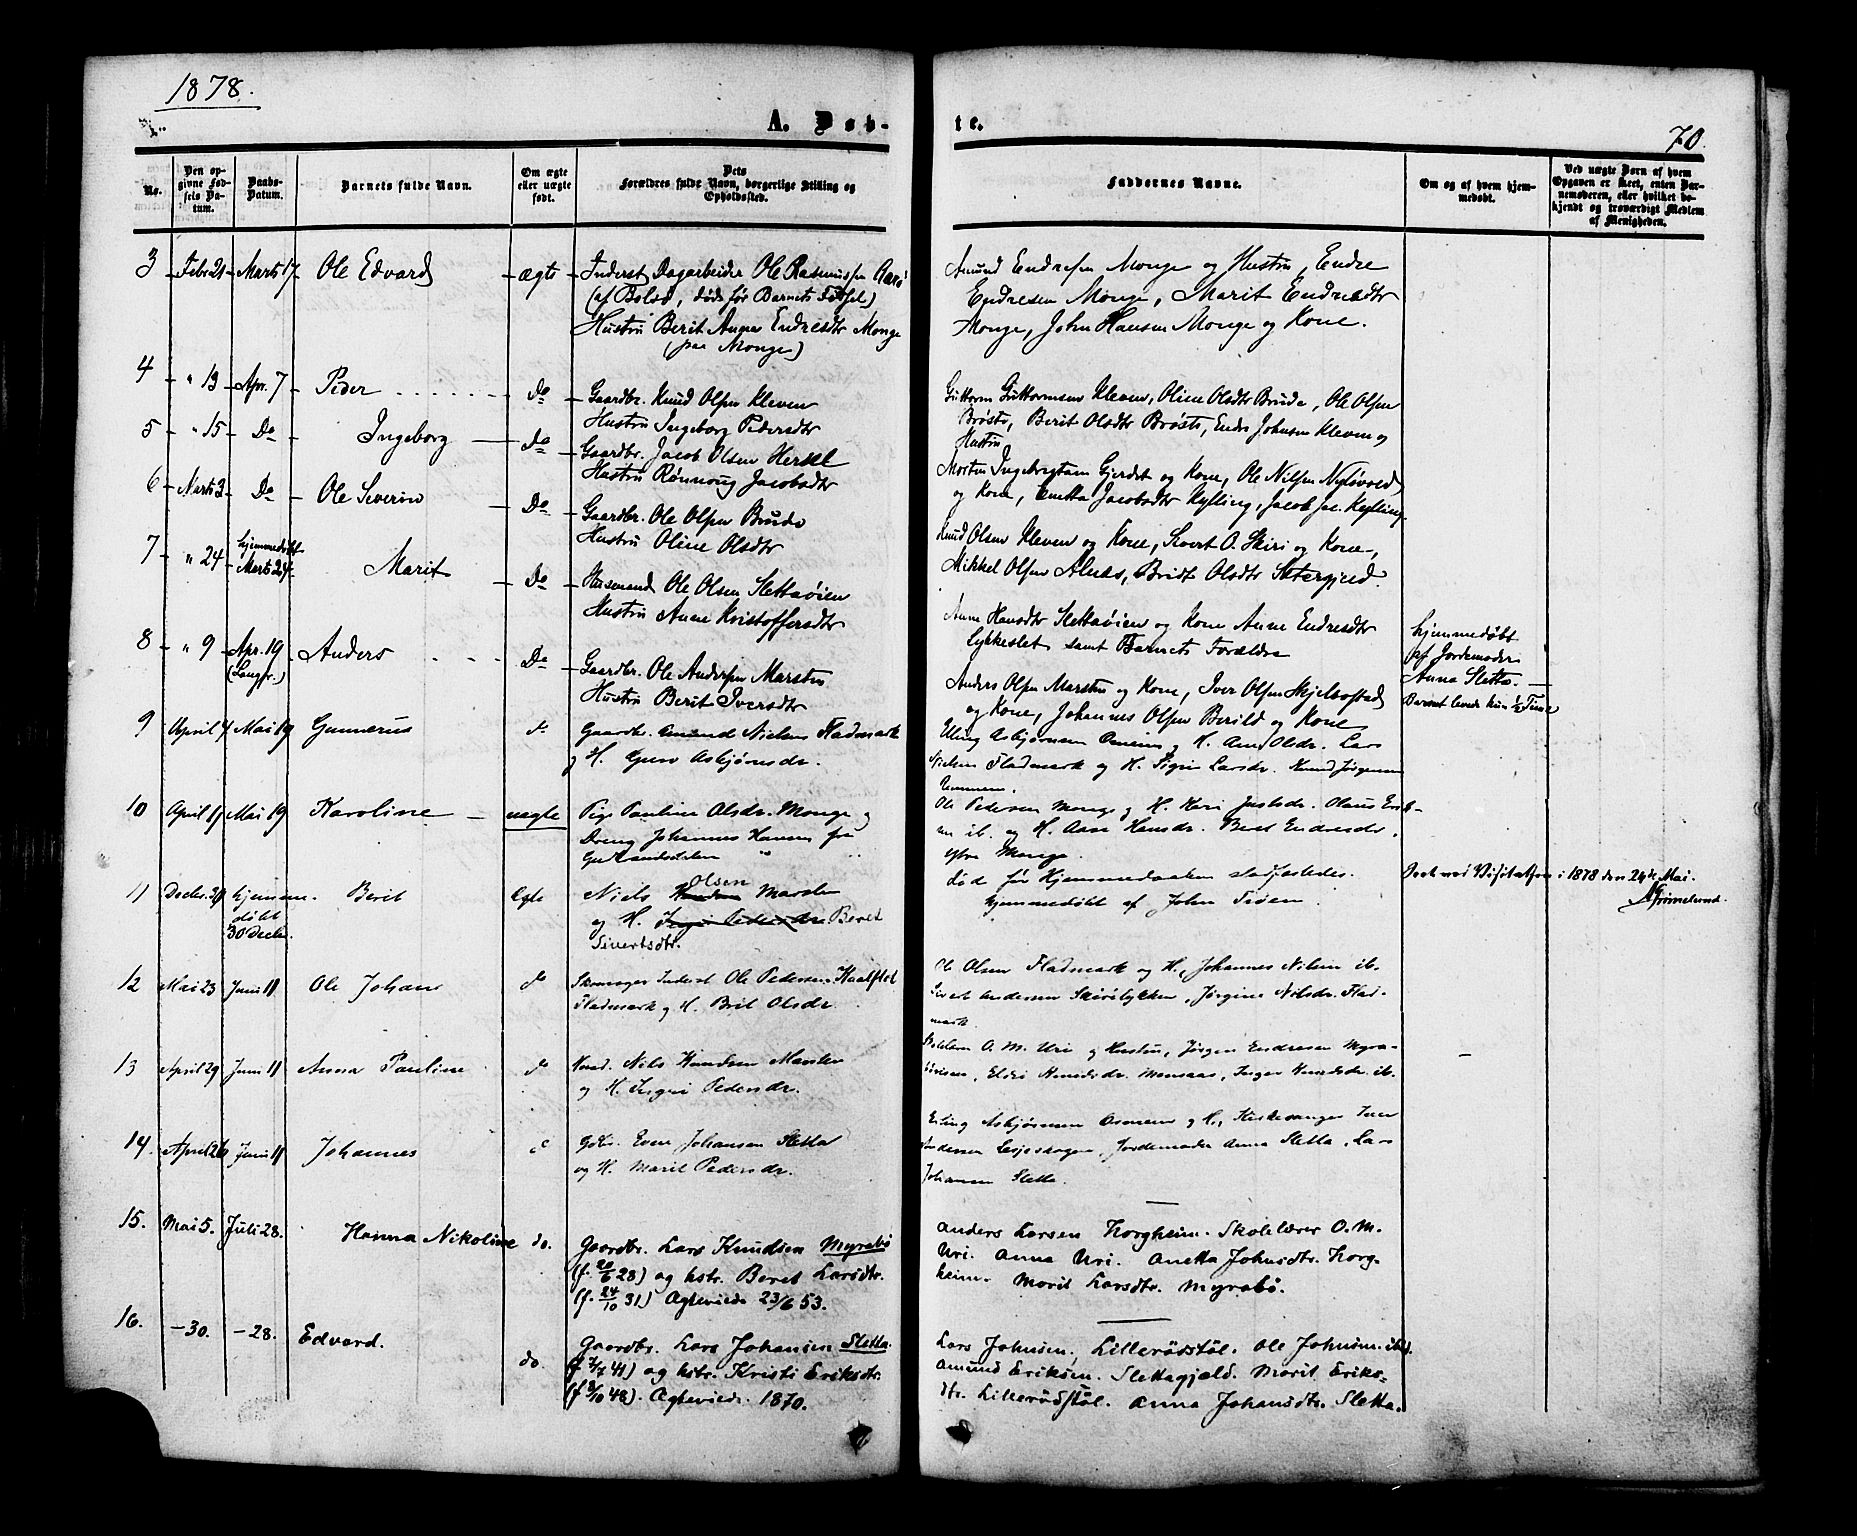 1878.
A. Døb-
te.
70.
No.
Den op-
givne Fød-
sels Da-
tum.
Daabs-
Datum.
Barnets fulde Navn.
Om ægte
eller uægte
født.
Dets
Forældres fulde Navn, borgerlige Stilling og
Opholdssted.
Faddernes Navne.
Om og af hvem hjem-
medøbt.
Ved uægte Børn af hvem
Opgaven er skeet, enten Bar-
nemoderen, eller hvilket be-
kjendt og troværdigt Medlem
af Menigheden.
3 Febr 21 Marts 17 Ole Edvard ægte
Inderst Dagarbeider Ole Rasmussen Aarø
(af Bolsø, døde før Barnets Fødsel)
Hustru Berit Anna Endresdtr Monge
(paa Monge)
Amund Endresen Monge og Hustru, Endre
Endresen Monge, Marit Endresdtr
Monge, John Hansen Monge og Kone.
4 " 13 Apr. 7 Peder Do
Gaardbr. Knud Olsen Kleven
Hustru Ingeborg Pedersdtr
Guttorm Guttormsen Kleven, Oline Olsdtr Brude, Ole Olsen
Brøste, Berit Olsdtr Brøste, Endre Johnsen Kleven og
Hustru
5 " 15 Do Ingeborg Do
Gaardbr. Jacob Olsen Hersel
Hustru Rønnoug Jacobsdtr
Morten Ingebrigtsen Gjerdet og Kone, Ole Nilsen
og Kone, Anetta Jacobsdtr Kylling, Jacob Jac. Kylling.
6 Marts 3 Do Ole Severin Do
Gaardbr. Ole Olsen Brude
Hustru Oline Olsdtr
Knud Olsen Kleven og Kone, Sivert O. Skiri og Kone,
Mikkel Olsen Alnæs, Bridt Olsdtr Sætergjerd.
7 " 24 hjemmedøbt
Marts 24 Marit Do
Husmand Ole Olsen Slettaøien
Hustru Anne Kristoffersdtr
Anne Hansdtr Slettaøien og Kone Anne Endresdtr
Lykkeslet samt Barnets Forældre
hjemmedøbt
af Jordemoder
Anna Sletta.
Barnet levede kun ½ Time
8 " 9 Apr. 19
(Langfr.) Anders Do
Gaardbr. Ole Andersen Marsten
Hustru Berit Iversdtr
Anders Olsen Marsten og Kone, Iver Olsen Skjelbostad
og Kone, Johannes Olsen Berild og Kone
9 April 4 Mai 19 Gunnerus do
Gaardbr. Amund Nielsen Fladmark
og H. Guru Asbjørnsdr.
Erling Asbjørnsen og H. Ane Olsdr. Lars
Nielsen Fladmark og H. Sigri Larsdr. Knud Jørgensen
10 April 19 Mai 19 Karoline uægte
Pige Pauline Olsdr. Monge og
Dreng Johannes Hansen fra
Gudbrandsdalen
Ole Pedersen Monge og H. Kari Justsdr. Olaus Erik-
sen ib. og H. Aase Hansdr. Beret Endresdr.
ytre Monge.
11 Decbr. 29 hjemme-
døbt
30 Decbr. Berit Egte
Olsen
Niels Knudsen Marsten
og H. Ingri Pedersdr Beret
Sivertsdtr.
død før Hjemmedaaben stadfæstedes.
hjemmedøbt af John Tiøen.
Seet ved Visitatsen i 1878 den 24de Mai.
12 Mai 23 Juni 11 Ole Johan do
Skomager Inderst Ole Pedersen Kaalstet
Fladmark og H. Brit Olsdr.
Ole Olsen Fladmark og H., Johannes Nilsen ib.
Sivert Andersen Skirilykken, Jørgine Nilsdr. Flad-
mark.
13 April 29 Juni 11 Anna Pauline do
Nils Knudsen Marsten
og H. Ingri Pedersdr.
Skolelærer O. M. Uri og Hustru, Jørgen Endresen Myra-
14 April 26 Juni 11 Johannes
Gdbr. Even Johansen Sletta
og H. Marit Pedersdr.
Erling Asbjørnsen og H., Kirkesanger
Andersen Lesjeskogen, Jordemoder Anna Sletta, Lars
Johansen Sletta.
15. Mai 5. Juli 28. Hanna Nikoline do.
Gaardbr. Lars Knudsen Myrabö
(f. 20/6 28) og hstr. Beret Larsdtr.
(f. 24/10 31) Ægteviede 23/6 53.
Anders Larsen Horgheim. Skolelærer O. M.
Uri. Anna Uri. Anetta Johnsdtr. Horg-
heim. Marit Larsdtr. Myrabö.
16. - 30. - 28. Edvard. do.
Gaardbr. Lars Johansen Sletta.
(f 7/7 41) og hstr. Kristi Eriksdtr.
(f 8/10 48). Ægteviede 1870.
Lars Johnsen, Lillerödstöl. Ole Johnsen ibid.
Amund Eriksen. Slettagjeld. Marit Eriks-
dtr. Lillerödstöl. Anna Johansdtr. Sletta.